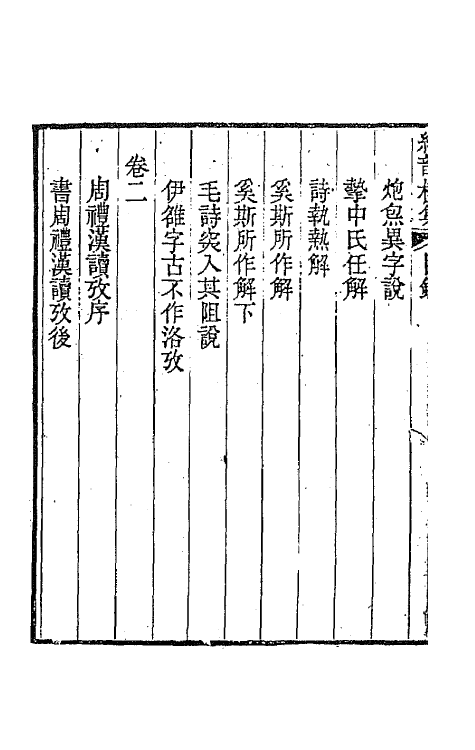 炮炰異字說
摯中氏任解
詩執熱解
奚斯所作解
奚斯所作解下
毛詩突入其阻說
伊雒字古不作洛攷
卷二
周禮漢讀攷序
書周禮漢讀攷後